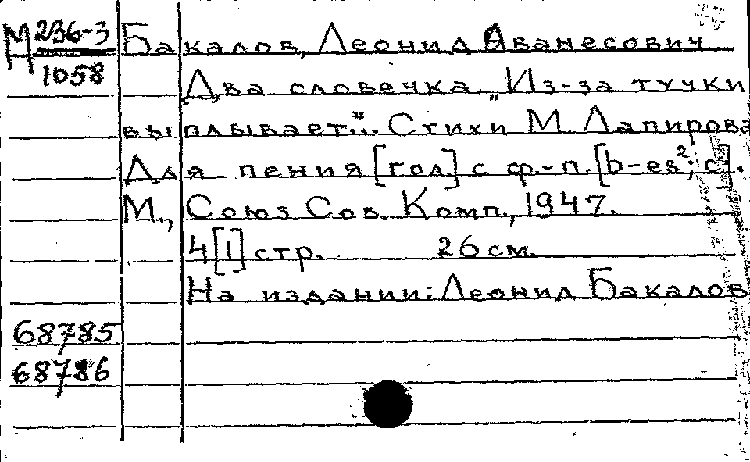 М 236-3
1058
Бакалов, Леонид Аванесович
Два словечка „Из-за тучки
выплывает..." Стихи М. Лапирова
Для пения [гол.] с ф.-п. [b-es²; c].
М., Союз Сов. Комп., 1947.
4 [1] стр. 26 см.
На издании: Леонид Бакалов
68785
68786